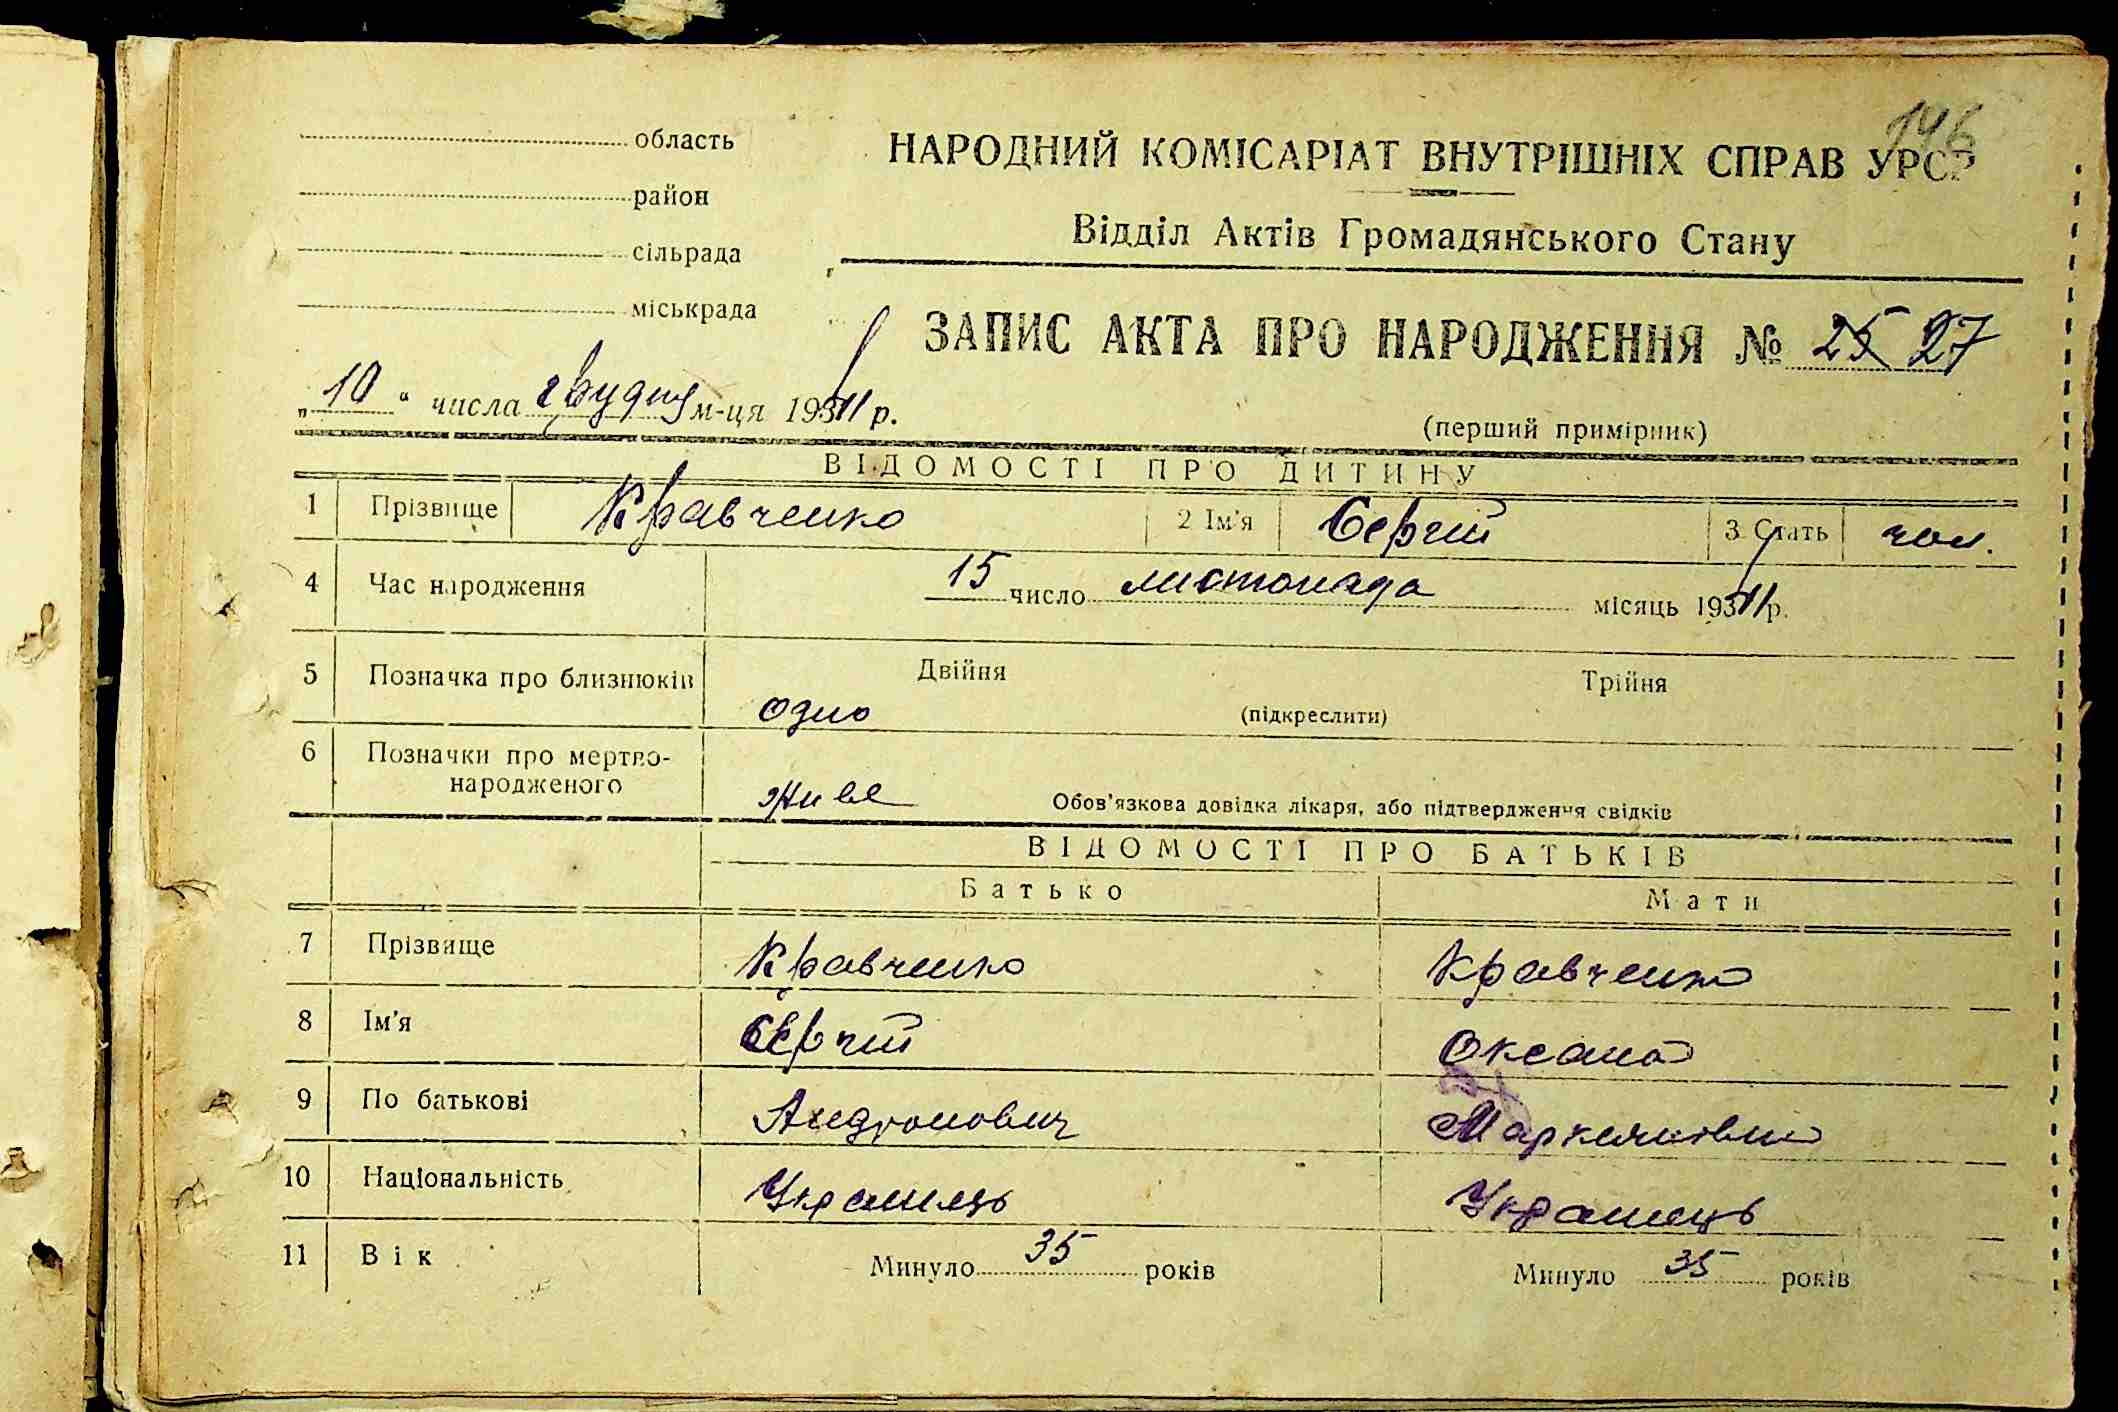 146
область
район
сільрада
міськрада
НАРОДНИЙ КОМІСАРІАТ ВНУТРІШНІХ СПРАВ УРСР
Відділ Актів Громадянського Стану
ЗАПИС АКТА ПРО НАРОДЖЕННЯ № 25 27
„10“ числа грудня м-ця 1941 р.
(перший примірник)
ВІДОМОСТІ ПРО ДИТИНУ
1 Прізвище Кравченко 2 Ім'я Сергій 3 Стать чол.
4 Час народження 15 число листопада місяць 1941 р.
5 Позначка про близнюків Двійня Трійня
одно (підкреслити)
6 Позначки про мертво-
народженого живе Обов'язкова довідка лікаря, або підтвердження свідків
ВІДОМОСТІ ПРО БАТЬКІВ
Батько Мати
7 Прізвище Кравченко Кравченко
8 Ім'я Сергій Оксана
9 По батькові Андронович Маркіянівна
10 Національність Українець Українець
11 Вік Минуло 35 років Минуло 35 років